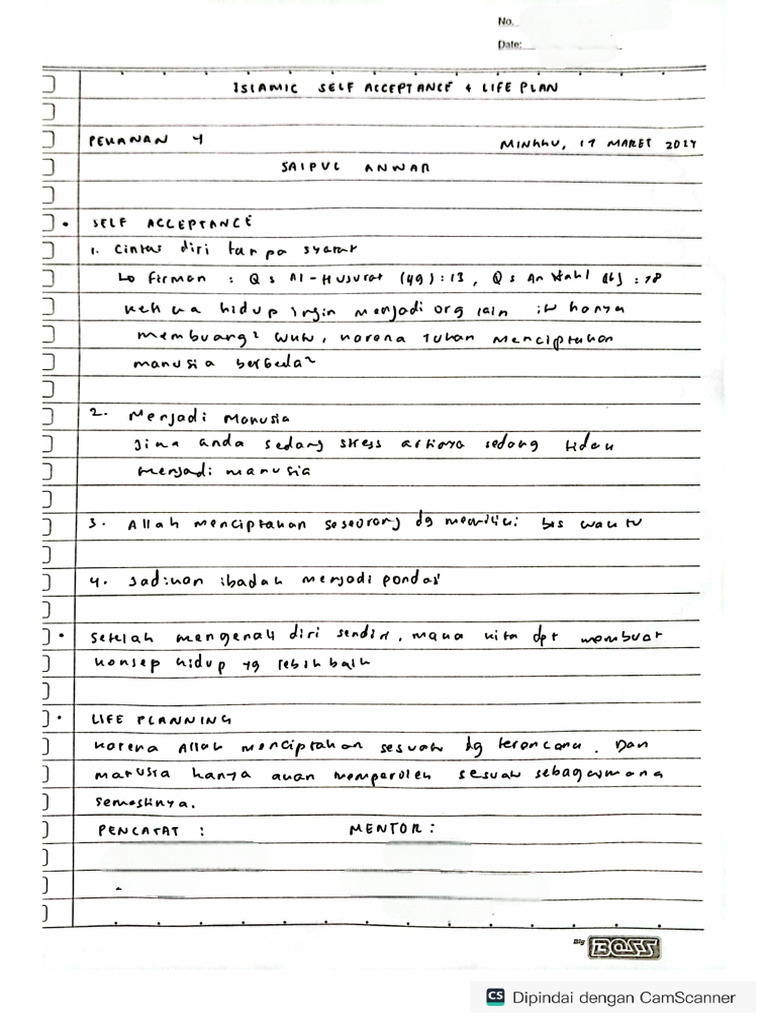 No.
Date:
ISLAMIC SELF ACCEPTANCE & LIFE PLAN
PEKANAN 4
MINGGU, 17 MARET 2024
SAIPUL ANWAR
• SELF ACCEPTANCE
1. Cintai diri tanpa syarat
↳ Firman : Qs Al-Hujurat (49) : 13, Qs An Nahl (16) : 78
Ketika hidup ingin menjadi org lain itu hanya
membuang² waktu, karena Tuhan menciptakan
manusia berbeda²
2. Menjadi Manusia
Jika anda sedang stress artinya sedang tidak
menjadi manusia
3. Allah menciptakan seseorang dg memiliki bts waktu
4. Jadikan ibadah menjadi pondasi
• Setelah mengenali diri sendiri, maka kita dpt membuat
konsep hidup yg lebih baik
• LIFE PLANNING
Karena Allah menciptakan sesuatu dg terencana. Dan
manusia hanya akan memperoleh sesuatu sebagaimana
semestinya.
PENCATAT :
MENTOR :
Big BOSS
CS Dipindai dengan CamScanner